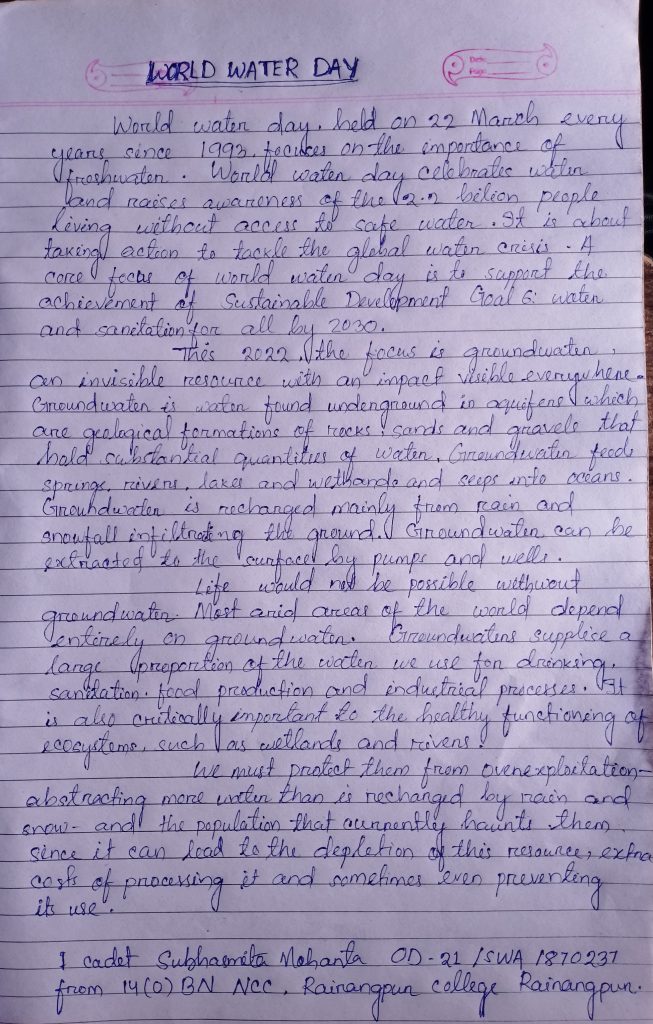 WORLD WATER DAY
Date:
Page:
World water day, held on 22 March every
years since 1993, focuses on the importance of
freshwater. World water day celebrates water
and raises awareness of the 2.2 bilion people
living without access to safe water. It is about
taking action to tackle the global water crisis. A
core focus of world water day is to support the
achievement of Sustainable Development Goal 6: water
and sanitation for all by 2030.
This 2022, the focus is groundwater,
an invisible resource with an inpact visible everywhere.
Groundwater is water found underground in aquifers which
are geological formations of rocks, sands and gravels that
hold substantial quantities of water. Groundwater feeds
springs, rivers, lakes and wethands and seeps into oceans.
Groundwater is recharged mainly from rain and
snowfall infiltrating the ground. Groundwater can be
extracted to the surface by pumps and wells.
Life would not be possible withwout
groundwater. Most arid areas of the world depend
entirely on groundwater. Groundwaters supplies a
large proportion of the water we use for drinking,
sanitation, food production and industrial processes. It
is also critically important to the healthy functioning of
ecosystems, such as wetlands and rivers.
We must protect them from overexploitation-
abstracting more water than is rechanged by rain and
snow- and the population that currently haunts them,
since it can lead to the depletion of this resource, extra
costs of processing it and sometimes even preventing
its use.
I cadet Subhasmita Mohanta OD-21/SWA/870237
from 14(O) BN NCC, Rairangpur college Rairangpur.